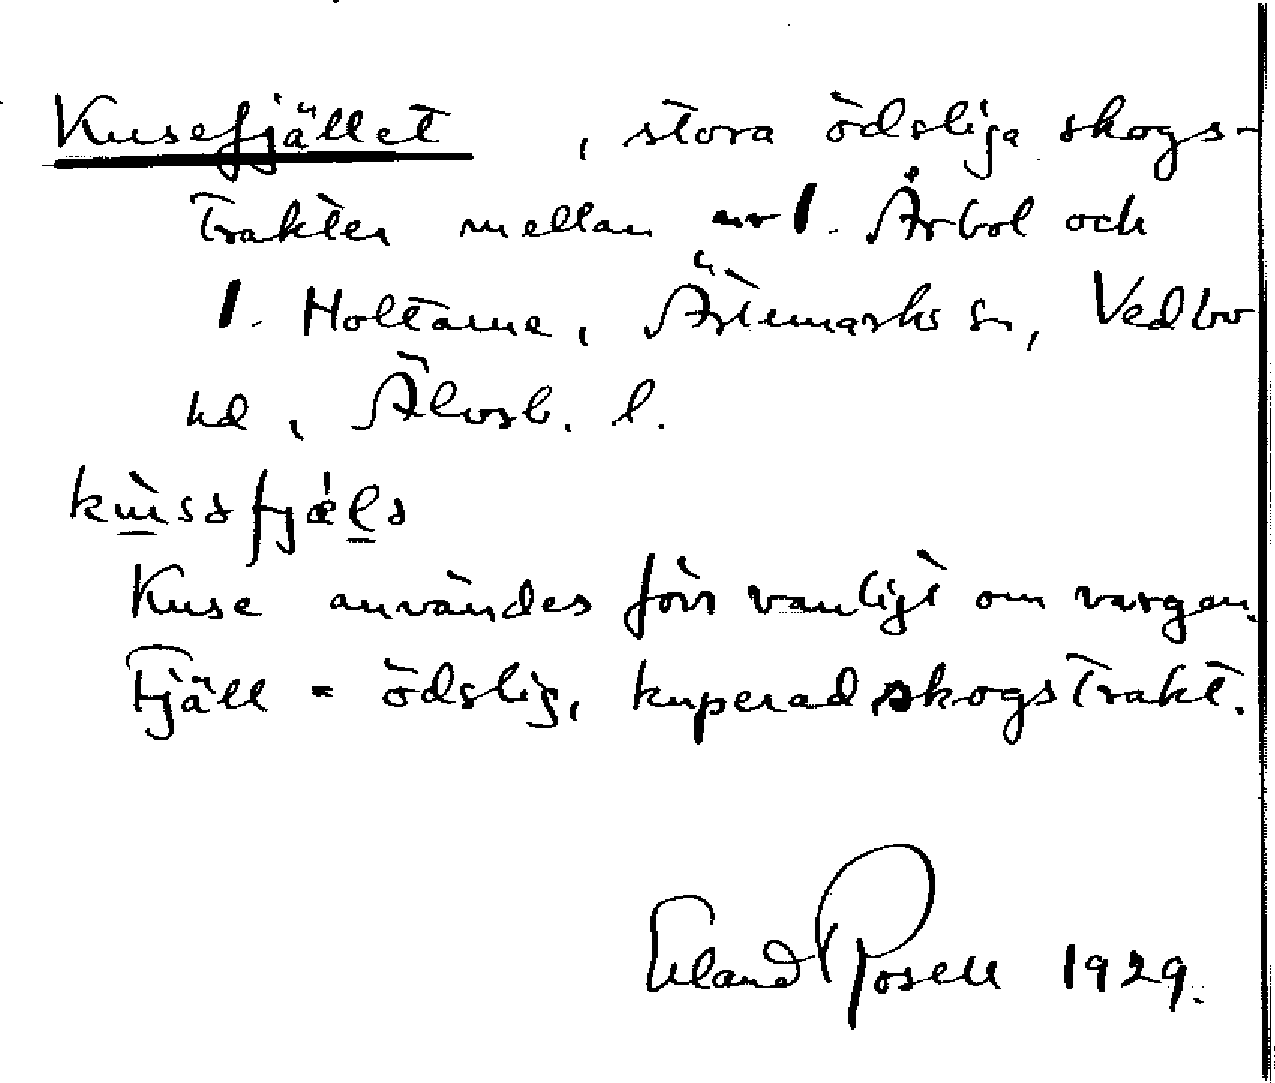 Kusefjället, stora ödsliga skogs-
trakter mellan 1. Årbol och
1. Holtarne, Ärtemarks sn, Vedbo
hd, Älvsb. l.
Kuse användes förr vanligt om vargen.
Fjäll = ödslig, kuperad skogstrakt.
Erland Rosell 1929.